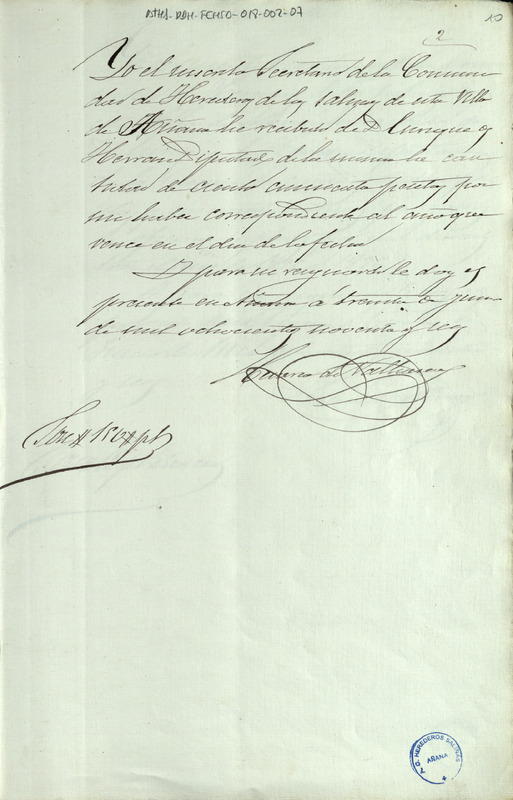 ATHA-DAH-FCHSO-018-002-07
10
2
Yo el infrascrito Secretario de la Comuni
dad de Herederos de las salinas de esta Villa
de Añana he recibido de D Enrique
Herran Diputado de la misma la can
tidad de ciento cincuenta pesetas por
mi haber correspondiente al año que
vence en el dia de la fecha
Y para su resguardo le doy el
presente en Añana á treinta de junio
de mil ochocientos noventa y seis
de
Son # 150 # pts
T. G. HEREDEROS SALINAS
AÑANA